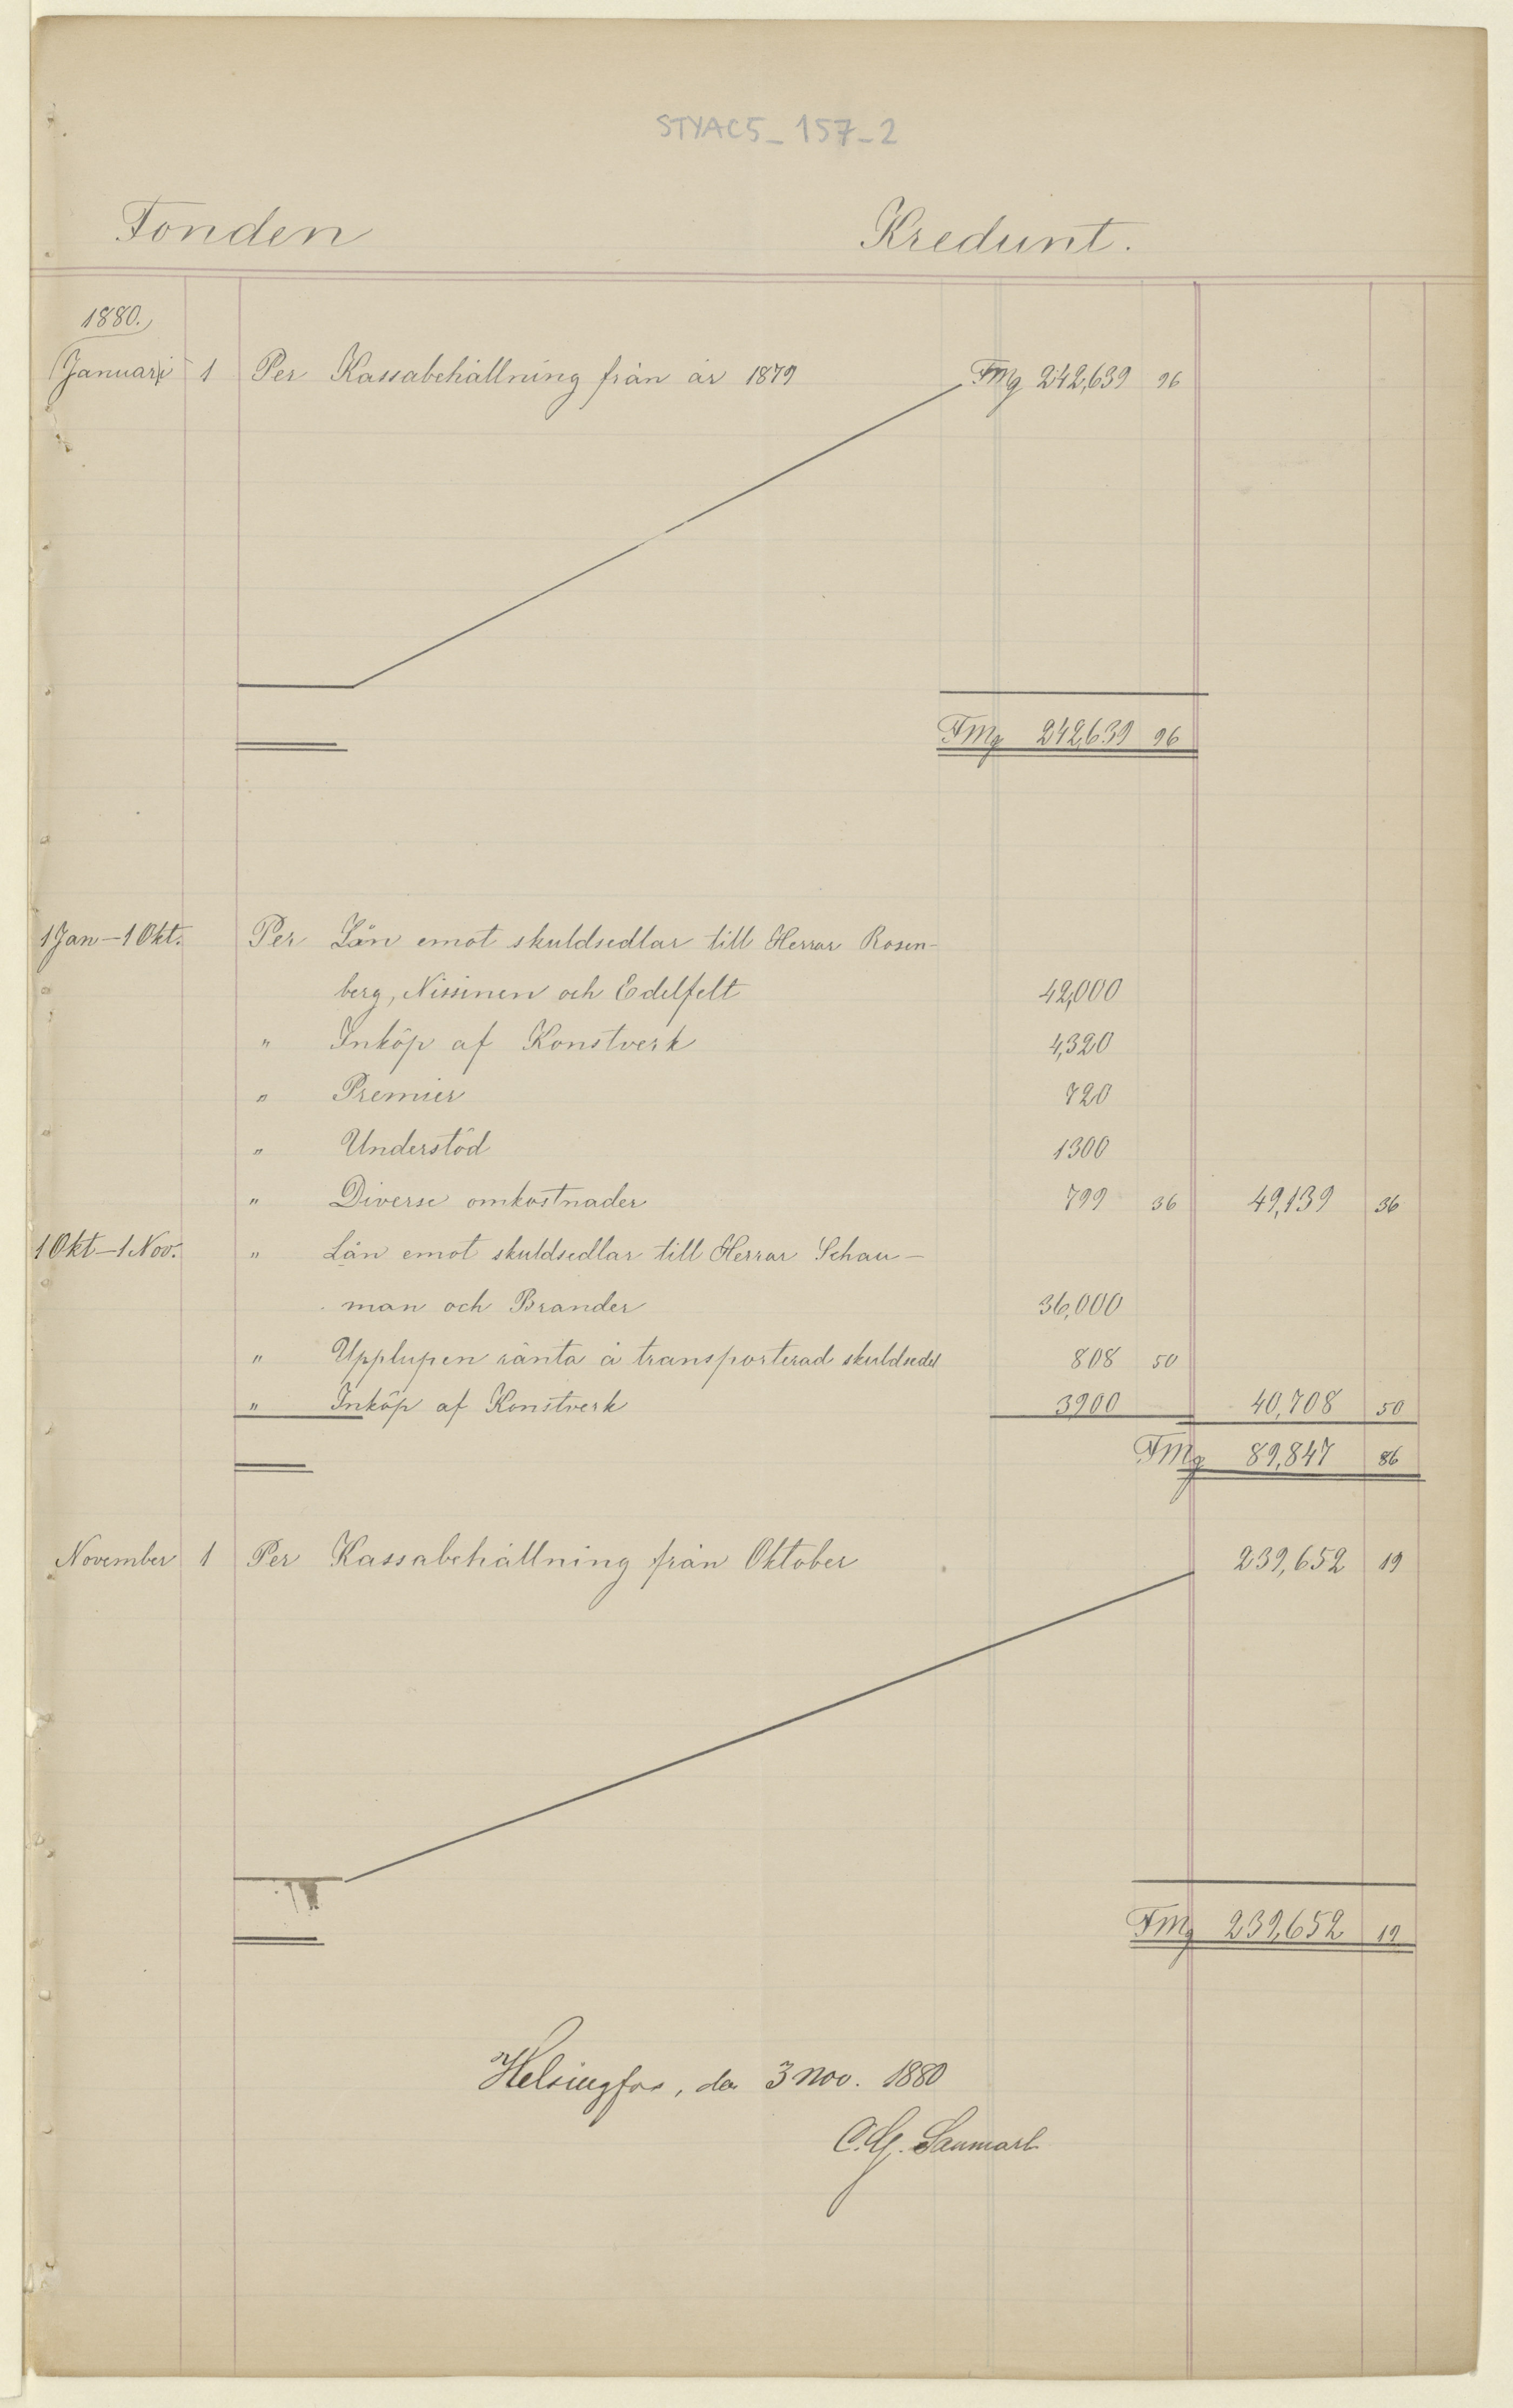 STYAC5_157_2
Fonden Kredunt.
1880.
Januari 1 Per Kassabehållning från år 1879 Fmg 242,639 96
Fmg 242,639 96
1 Jan–1 Okt. Per Lån emot skuldsedlar till Herrar Rosen-
berg, Nissinen och Edelfelt 42,000
" Inköp af Konstverk 4,320
" Premier 720
" Understöd 1300
" Diverse omkostnader 799 36 49,139 36
1 Okt–1 Nov. " Lån emot skuldsedlar till Herrar Schau-
man och Brander 36,000
" Upplupen ränta å transporterad skuldsedel 808 50
" Inköp af Konstverk 3900 40,708 50
Fmg 89,847 86
November 1 Per Kassabehållning från Oktober 239,652 19
Fmg 239,652 19
Helsingfors, den 3 Nov. 1880
C. G. Sanmark